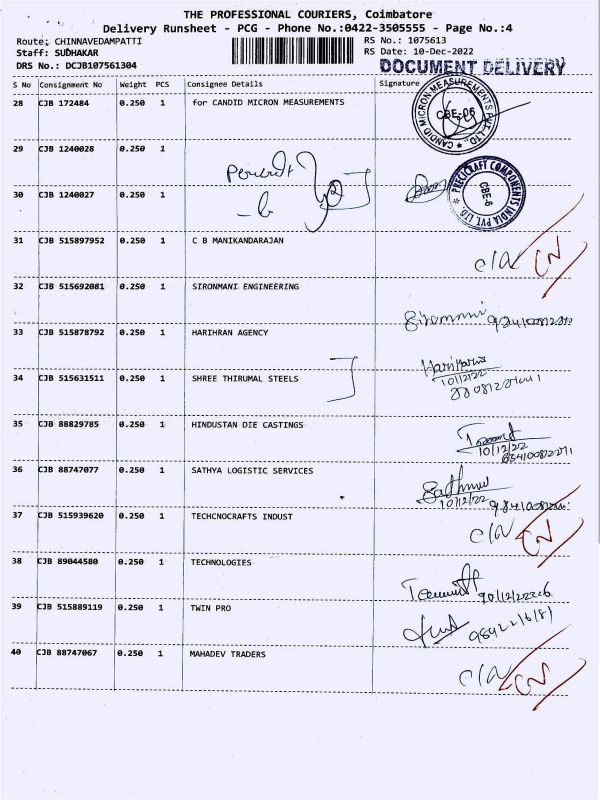 THE PROFESSIONAL COURIERS, Coimbatore
Delivery Runsheet - PCG - Phone No.:0422-3505555 - Page No.:4
Route: CHINNAVEDAMPATTI RS No.: 1075613
Staff: SUDHAKAR RS Date: 10-Dec-2022
DRS No.: DCJB107561304 DOCUMENT DELIVERY
S No Consignment No Weight PCS Consignee Details Signature
28 CJB 172484 0.250 1 for CANDID MICRON MEASUREMENTS
CANDID MICRON MEASUREMENTS PVT. LTD.
CBE-06
29 CJB 1240028 0.250 1
30 CJB 1240027 0.250 1
PRECICRAFT COMPONENTS INDIA PVT LTD.
CBE-6
31 CJB 515897952 0.250 1 C B MANIKANDARAJAN
32 CJB 515692081 0.250 1 SIRONMANI ENGINEERING
33 CJB 515878792 0.250 1 HARIHRAN AGENCY
10/12/22
34 CJB 515631511 0.250 1 SHREE THIRUMAL STEELS
35 CJB 88829785 0.250 1 HINDUSTAN DIE CASTINGS
10/12/22
36 CJB 88747077 0.250 1 SATHYA LOGISTIC SERVICES
10/12/22
37 CJB 515939620 0.250 1 TECHCNOCRAFTS INDUST
38 CJB 89044580 0.250 1 TECHNOLOGIES
39 CJB 515889119 0.250 1 TWIN PRO
40 CJB 88747067 0.250 1 MAHADEV TRADERS